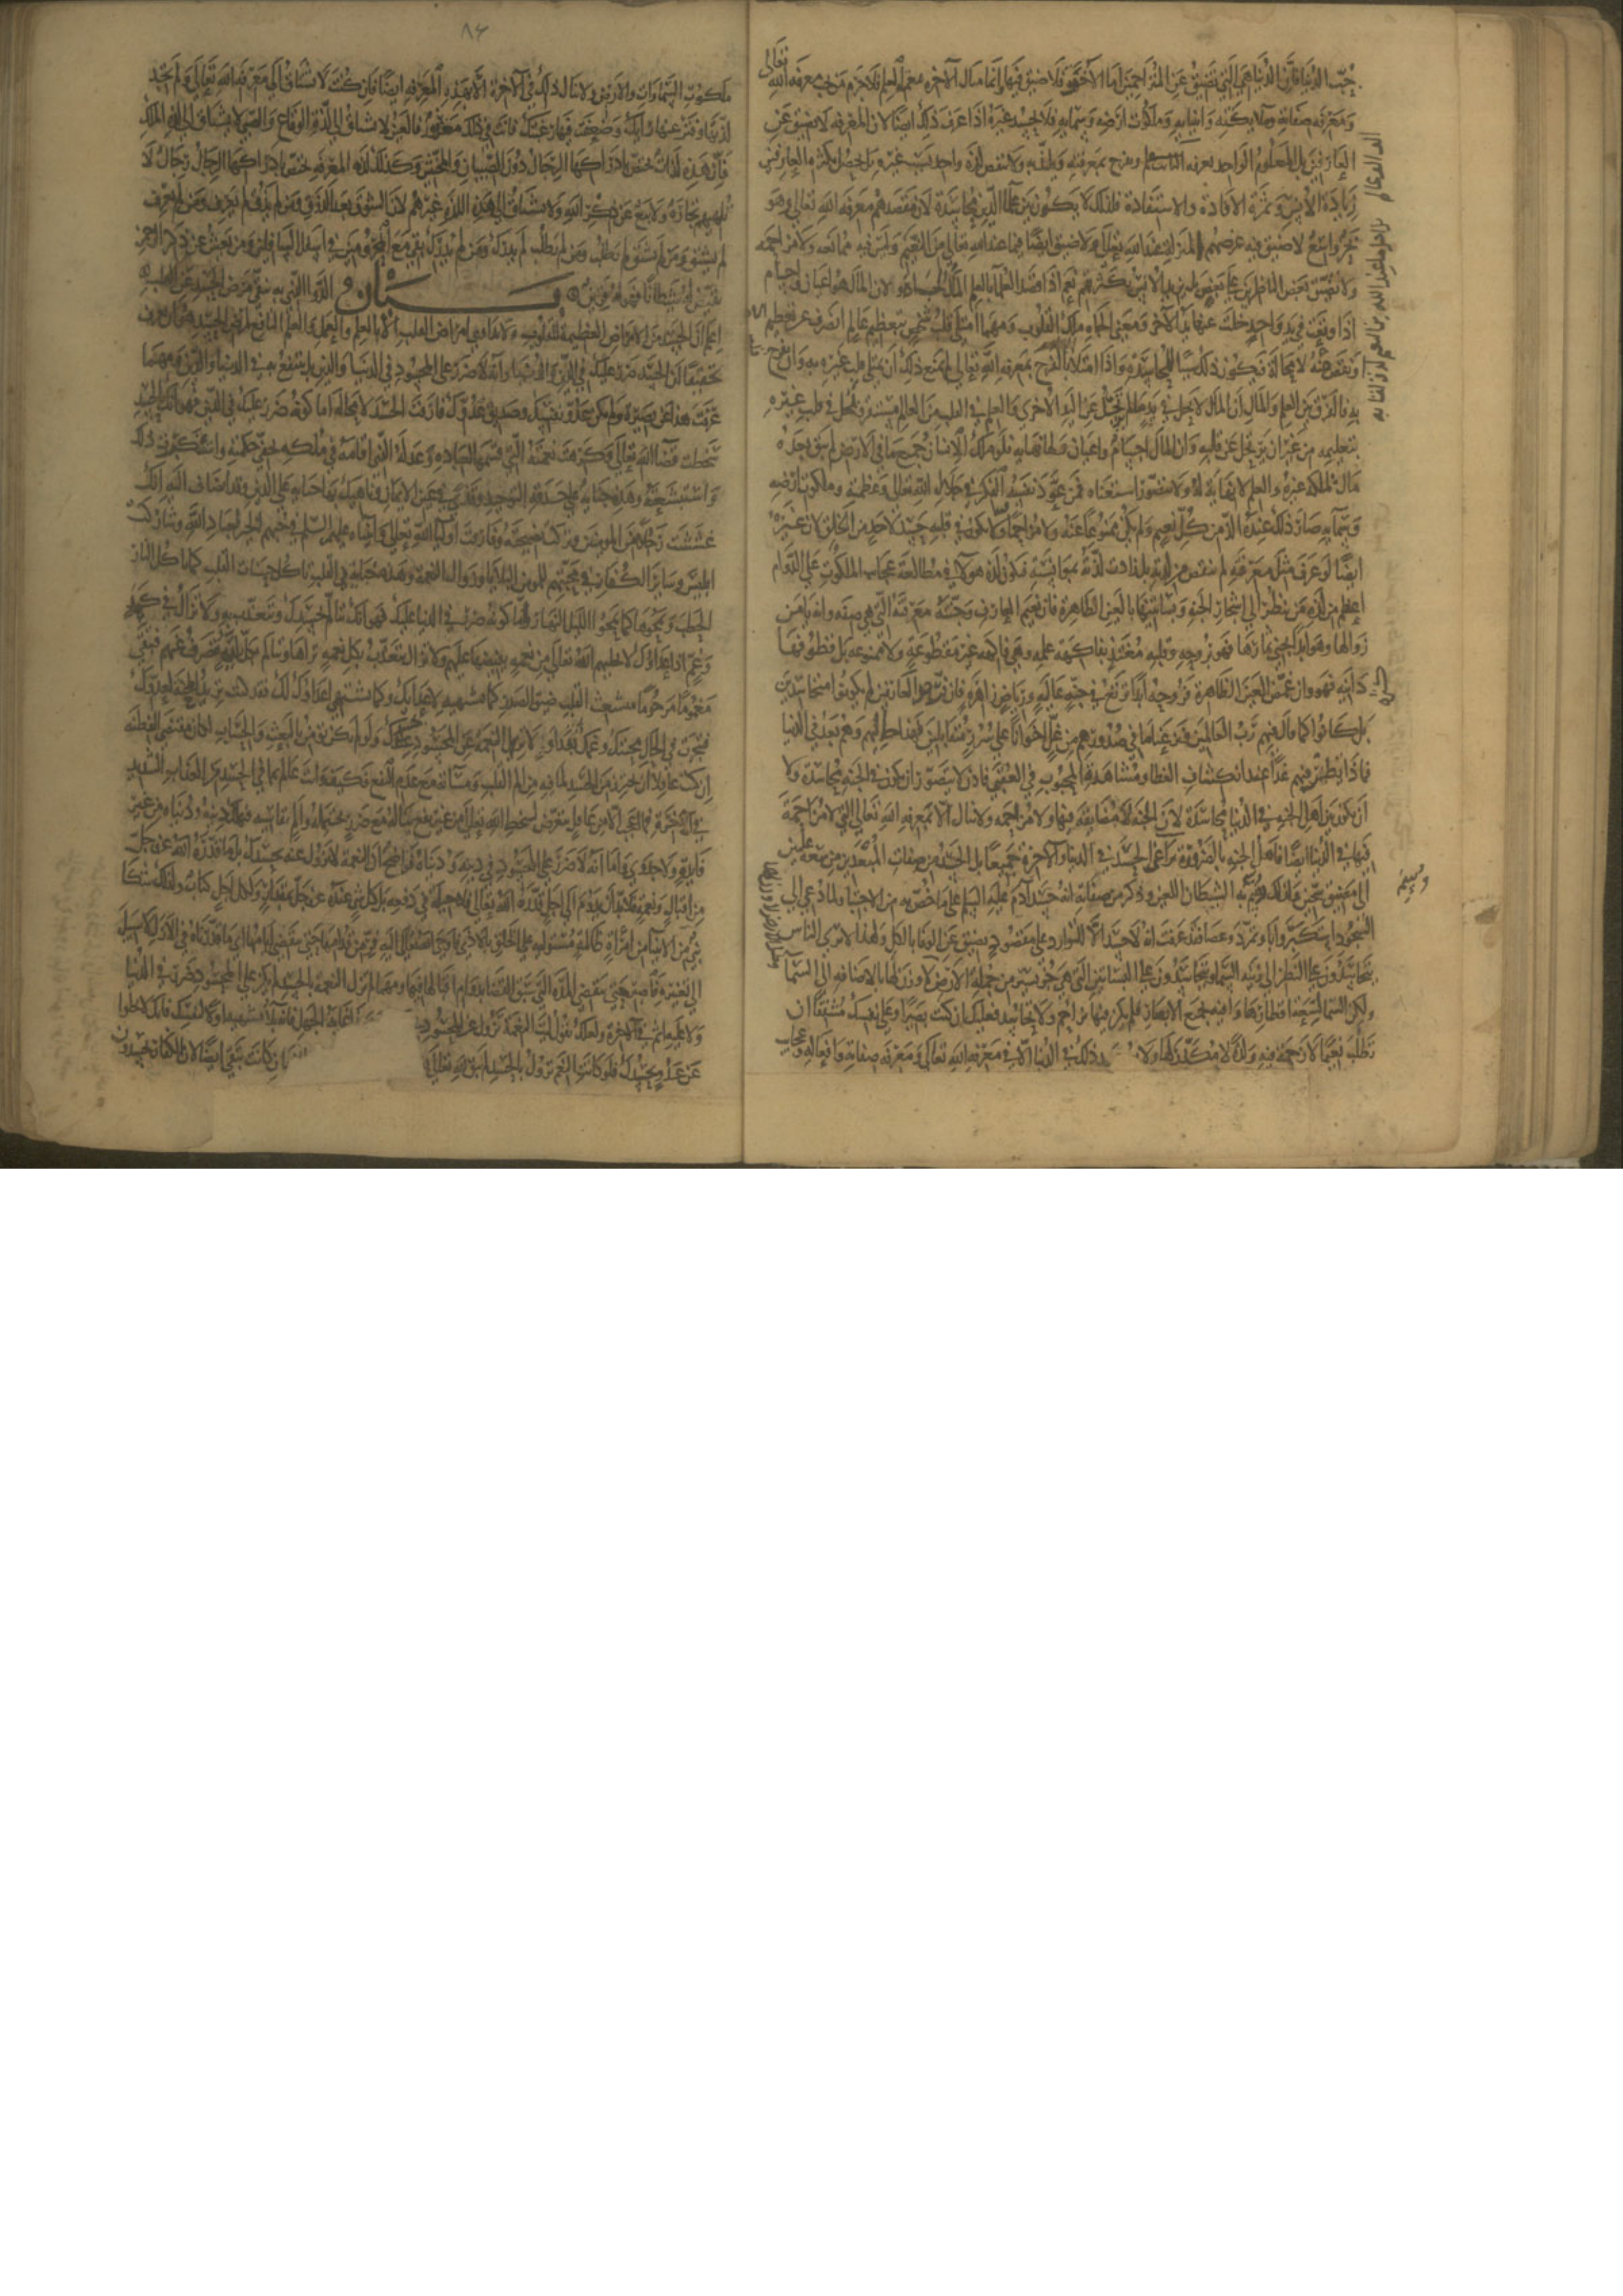 حب الدنيا فان الدنيا هي التي تضيق عن المتزاحمين اما الآخرة فلا ضيق فيها وانما مثال الآخرة نعمة العلم فلا جرم من يحب معرفة الله تعالى
ومعرفة صفاته وملائكته وانبيائه وملكوت ارضه وسمائه فلا يحسد غيره اذا عرف ذلك ايضا لان المعرفة لا تضيق عن
العارفين بل المعلوم الواحد يعرفه الف الف عالم ويفرح بمعرفته ويلتذ به ولا تنقص لذة واحد بسبب غيره بل يحصل بكثرة العارفين
زيادة الانس وثمرة الافادة والاستفادة فلذلك لا يكون بين علماء الدين محاسدة لان مقصدهم معرفة الله تعالى وهو
بحر واسع لا ضيق فيه وغرضهم المنزلة عند الله تعالى ولا ضيق ايضا فيما عند الله تعالى
نعم اذا قصد العلماء بالعلم المال والجاه تحاسدوا لان المال هو اعيان واجسام
اذا وقعت في يد واحد خلت عنها يد الآخر ومعنى الجاه ملك القلوب ومهما امتلأ قلب شخص بتعظيم عالم انصرف عن تعظيم الآخر
او نقص عنه لا محالة فيكون ذلك سببا للمحاسدة واذا امتلأ بالفرح بمعرفة الله تعالى لم يمنع ذلك ان يمتلئ قلب غيره به وان يفرح
به فالفرق بين العلم والمال ان المال لا يحل في يد ما لم يرتحل عن اليد الاخرى والعلم في قلب العالم مستقر ويحل في قلب غيره
بتعليمه من غير ان يرتحل عن قلبه وان المال اجسام واعيان ولها نهاية فلو ملك الانسان جميع ما في الارض لم يبق بعده
مال يملكه غيره والعلم لا نهاية له ولا يتصور استيعابه فمن عود نفسه الفكر في جلال الله تعالى وعظمته وملكوت ارضه
وسمائه صار ذلك عنده الذ من كل نعيم ولم يكن ممنوعا عنه ولا مزاحما فلا يكون في قلبه حسد لاحد من الخلق لان غيره
ايضا لو عرف مثل معرفته لم ينقص من لذته بل زادت لذته بمؤانسته فتكون لذة هؤلاء في مطالعة عجائب الملكوت على الدوام
اعظم من لذة من ينظر الى اشجار الجنة وبساتينها بالعين الظاهرة فان نعيم العارف وجنته معرفته التي هي صفته وانه يامن
زوالها وهو ابدا يجني ثمارها فهو بروحه وقلبه مغتذ بفاكهة علمه وهي فاكهة غير مقطوعة ولا ممنوعة بل قطوفها
دانية فهو وان غمض العين الظاهرة فروحه ابدا ترتع في جنة عالية ورياض زاهرة فان فرض كثرة العارفين لم يكونوا متحاسدين
بل كانوا كما قال فيهم رب العالمين ونزعنا ما في صدورهم من غل اخوانا على سرر متقابلين فهذا حالهم وهم بعد في الدنيا
فما ذا يظن بهم غدا عند انكشاف الغطاء ومشاهدة المحبوب في العقبى فاذن لا يتصور ان يكون في الجنة محاسدة ولا
ان يكون بين اهل الجنة في الدنيا محاسدة لان الجنة لا مضايقة فيها ولا مزاحمة ولا تنال الا بمعرفة الله تعالى التي لا مزاحمة
فيها في الدنيا ايضا فاهل الجنة بالضرورة برآء عن الحسد في الدنيا والآخرة جميعا بل الحسد من صفات المبعدين من سعة عليين
الى مضيق سجين ولذلك وسم به الشيطان اللعين وذكر من صفاته انه حسد آدم عليه السلم على ما خص به من الاجتباء ولما دعي الى
السجود استكبر وابى وتمرد وعصى فقد عرفت انه لا حسد الا للتوارد على مقصود يضيق عن الوفاء بالكل ولهذا لا ترى الناس
يتحاسدون على النظر الى زينة السماء ويتحاسدون على البساتين التي هي جزء يسير من جملة الارض والارض لا وزن لها بالاضافة الى السماء
ولكن السماء لسعة اقطارها وافية بجميع الابصار فلم يكن فيها تزاحم ولا تحاسد فعليك ان كنت بصيرا وعلى نفسك مشفقا ان
تطلب نعيما لا زحمة فيه ولذة لا مكدر لها ولا يوجد ذلك في الدنيا الا في معرفة الله تعالى ومعرفة صفاته وافعاله وعجائب
٨٤
ملكوت السماوات والارض ولا ينال ذلك في الآخرة الا بهذه المعرفة ايضا فان كنت لا تشتاق الى معرفة الله تعالى ولم تجد
لذتها وفتر عنها رايك وضعفت فيها رغبتك فانت في ذلك معذور فالعنين لا يشتاق الى لذة الوقاع والصبي لا يشتاق الى لذة الملك
فان هذه لذات يختص بادراكها الرجال دون الصبيان والمخنثين وكذلك لذة المعرفة يختص بادراكها الرجال رجال لا
تلهيهم تجارة ولا بيع عن ذكر الله ولا يشتاق الى هذه اللذة غيرهم لان الشوق بعد الذوق ومن لم يذق لم يعرف ومن لم يعرف
لم يشتق ومن لم يشتق لم يطلب ومن لم يطلب لم يدرك ومن لم يدرك بقي مع المحرومين في اسفل السافلين ومن يعش عن ذكر الرحمن
نقيض له شيطانا فهو له قرين بيان الدواء الذي به ينفى مرض الحسد عن القلب
اعلم ان الحسد من الامراض العظيمة للقلوب ولا تداوى امراض القلب الا بالعلم والعمل والعلم النافع لمرض الحسد هو ان تعرف
تحقيقا ان الحسد ضرر عليك في الدين والدنيا وانه لا ضرر على المحسود في الدنيا والدين بل ينتفع به في الدنيا والدين ومهما
عرفت هذا عن بصيرة ولم تكن عدو نفسك وصديق عدوك فارقت الحسد لا محالة اما كونه ضررا عليك في الدين فهو انك بالحسد
سخطت قضاء الله تعالى وكرهت نعمته التي قسمها لعباده وعدله الذي اقامه في ملكه بخفي حكمته واستنكرت ذلك
واستبشعته وهذه جناية على حدقة التوحيد وقذى في عين الايمان وناهيك بها جناية على الدين وقد انضاف اليه انك
غششت رجلا من المؤمنين وتركت نصيحته وفارقت اولياء الله تعالى وانبياءه عليهم السلم في حبهم الخير لعباد الله وشاركت
ابليس وسائر الكفار في محبتهم للمؤمنين البلايا وزوال النعمة وهذه خبائث في القلب تاكل حسنات القلب كما تاكل النار
الحطب وتمحوها كما يمحو الليل النهار واما كونه ضررا في الدنيا عليك فهو انك تتالم بحسدك وتتعذب به ولا تزال في كمد
وغم اذ اعداؤك لا يخليهم الله تعالى عن نعم يفيضها عليهم ولا تزال تتعذب بكل نعمة تراها وتتالم بكل بلية تنصرف عنهم فتبقى
مغموما محروما متشعب القلب ضيق الصدر كما تشتهيه لاعدائك وكما يشتهي اعداؤك لك فقد كنت تريد المحنة لعدوك
فتنجزت في الحال محنتك وغمك نقدا ولا تزول النعمة عن المحسود بحسدك ولو لم تكن تؤمن بالبعث والحساب لكان مقتضى الفطنة
ان كنت عاقلا ان تحذر من الحسد لما فيه من الم القلب ومساءته مع عدم النفع فكيف وانت عالم بما في الحسد من العذاب الشديد
في الآخرة فما اعجب من عاقل يتعرض لسخط الله تعالى من غير نفع يناله مع ضرر يحتمله والم يقاسيه فيهلك دينه ودنياه من غير
فائدة ولا جدوى واما انه لا ضرر على المحسود في دينه ودنياه فواضح لان النعمة لا تزول عنه بحسدك بل ما قدره الله عز وجل
من اقبال ونعمة فلا بد ان يدوم الى اجل قدره الله تعالى فلا حيلة في دفعه بل كل شيء عنده عز وجل بمقدار ولكل اجل كتاب ولذلك شكا
نبي من الانبياء من امرأة ظالمة مستولية على الخلق فاوحى الله تعالى اليه فر من قدامها حتى تنقضي ايامها اي ما قدرناه في الازل لا سبيل
الى تغييره فاصبر حتى تنقضي المدة التي سبق القضاء بدوام اقبالها فيها ومهما لم تزل النعمة بالحسد لم يكن على المحسود ضرر في الدنيا
ولا عليه اثم في الآخرة ولعلك تقول ليت النعمة تزول عن المحسود بحسدي وهذا غاية الجهل فانه بلاء تشتهيه اولا لنفسك فانك لا تخلوا
عن عدو يحسدك فلو كانت النعم تزول بالحسد لم يبق لله تعالى